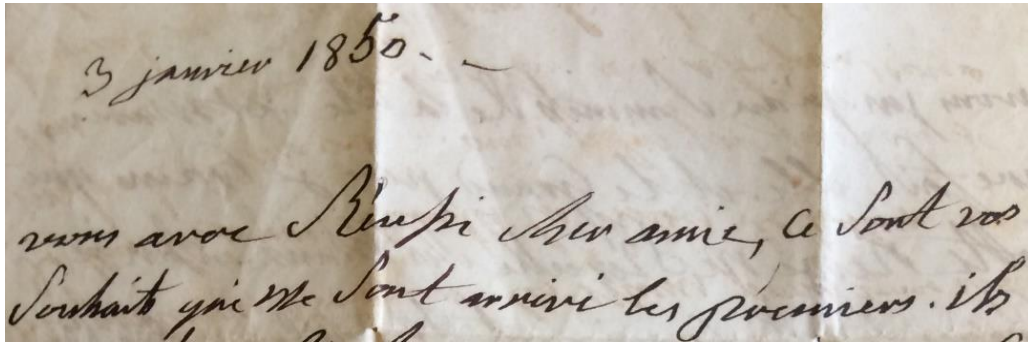 3 janvier 1850. -
vous avez Réussi cher amie, ce sont vos
souhaits qui me sont arrivé les premiers. ils